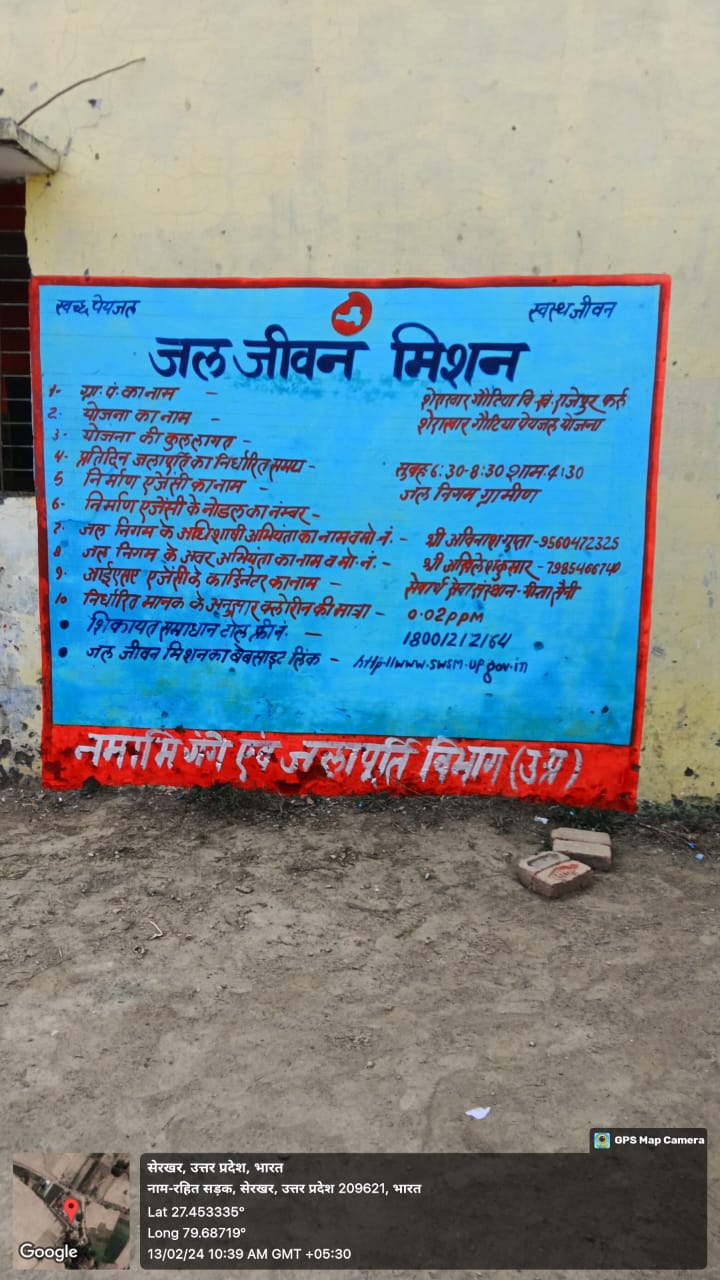 स्वच्छ पेयजल स्वस्थ जीवन
जल जीवन मिशन
1- ग्रा. पं. का नाम - शेराखार गौटिया वि.खं. राजेपुर फर्रु
2- योजना का नाम - शेराखार गौटिया पेयजल योजना
3- योजना की कुल लागत -
4- प्रतिदिन जलापूर्ति का निर्धारित समय - सुबह 6:30-8:30 शाम 4:30
5 निर्माण एजेंसी का नाम - जल निगम ग्रामीण
6- निर्माण एजेंसी के नोडल का नंबर -
7- जल निगम के अधिशाषी अभियंता का नाम व मो. नं. - श्री अविनाश गुप्ता - 9560472325
8 जल निगम के अवर अभियंता का नाम व मो. नं. - श्री अखिलेश कुमार - 7985466740
9- आईएसए एजेंसी के कार्डिनेटर का नाम - सेवार्थ सेवा संस्थान - सैनी
10 निर्धारित मानक के अनुसार क्लोरीन की मात्रा - 0.02ppm
• शिकायत समाधान टोल फ्री नं. - 18001212164
• जल जीवन मिशन का बेबसाइट लिंक - http://www.swsm.up.gov.in
नमामि गंगे एवं जलापूर्ति विभाग (उ.प्र)
GPS Map Camera
सेरखर, उत्तर प्रदेश, भारत
नाम-रहित सड़क, सेरखर, उत्तर प्रदेश 209621, भारत
Lat 27.453335°
Long 79.68719°
13/02/24 10:39 AM GMT +05:30
Google